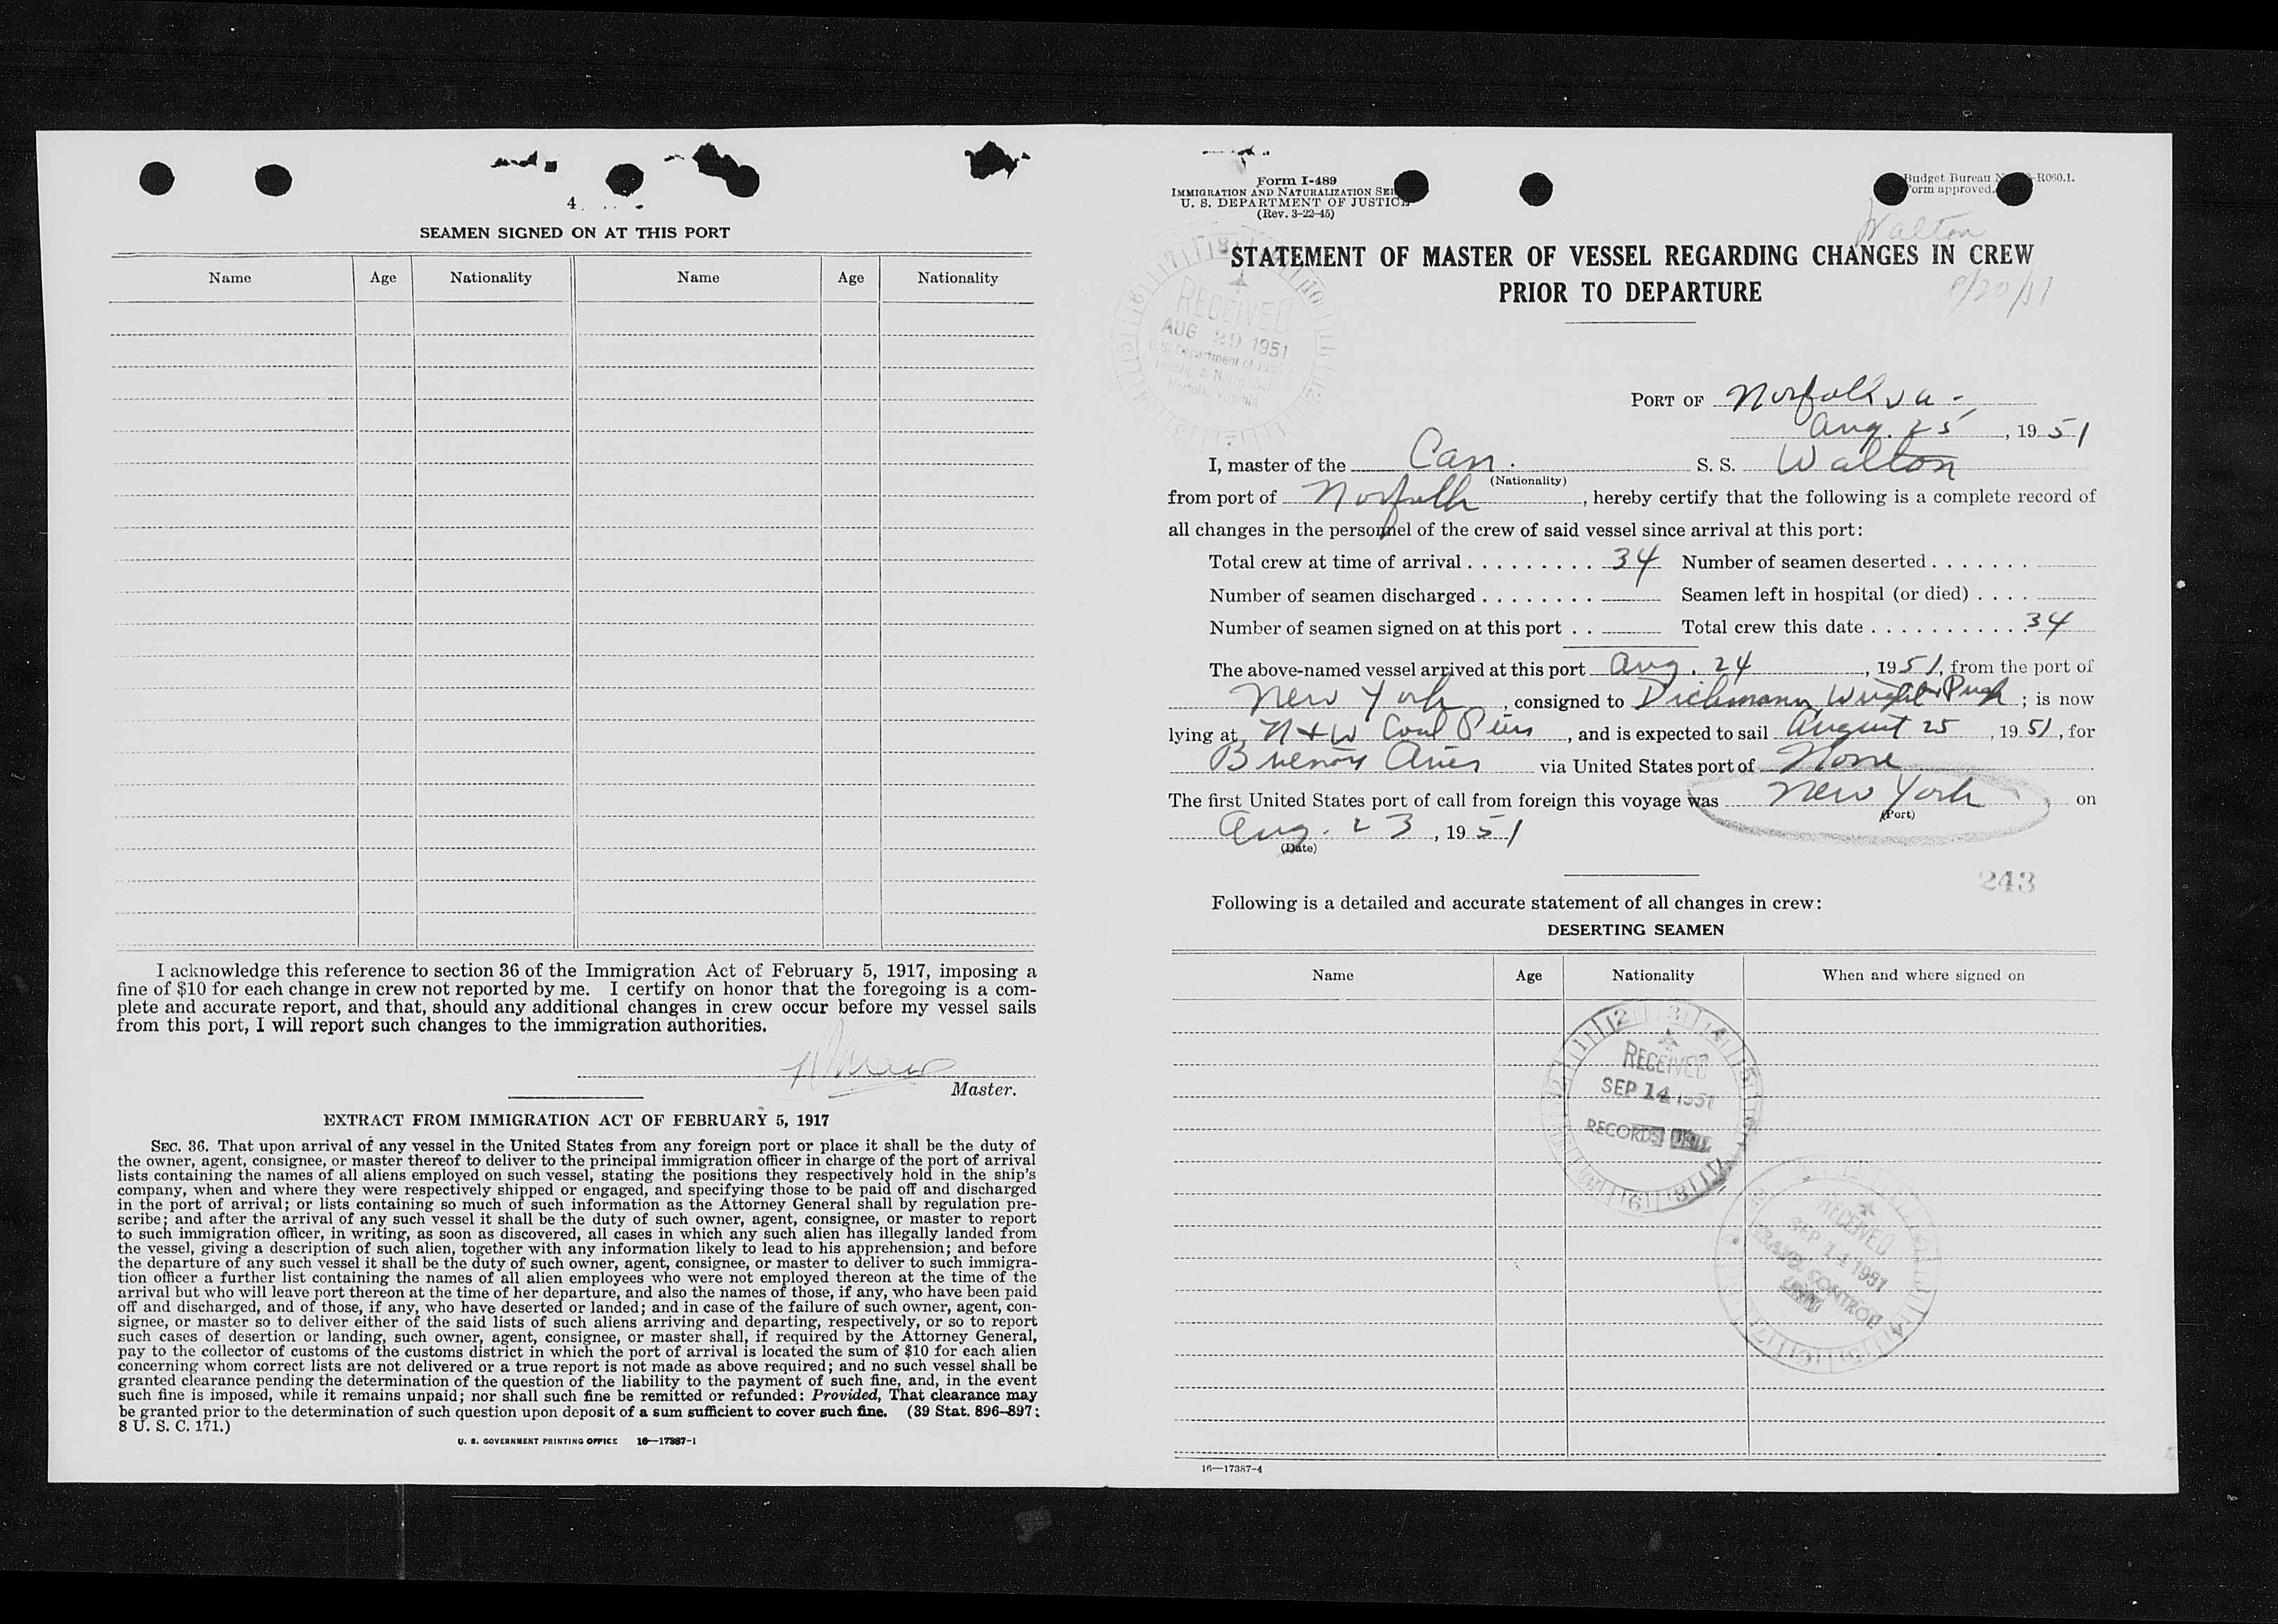 4
SEAMEN SIGNED ON AT THIS PORT
Name Age Nationality Name Age Nationality
I acknowledge this reference to section 36 of the Immigration Act of February 5, 1917, imposing a
fine of $10 for each change in crew not reported by me. I certify on honor that the foregoing is a com-
plete and accurate report, and that, should any additional changes in crew occur before my vessel sails
from this port, I will report such changes to the immigration authorities.
Master.
EXTRACT FROM IMMIGRATION ACT OF FEBRUARY 5, 1917
SEC. 36. That upon arrival of any vessel in the United States from any foreign port or place it shall be the duty of
the owner, agent, consignee, or master thereof to deliver to the principal immigration officer in charge of the port of arrival
lists containing the names of all aliens employed on such vessel, stating the positions they respectively hold in the ship's
company, when and where they were respectively shipped or engaged, and specifying those to be paid off and discharged
in the port of arrival; or lists containing so much of such information as the Attorney General shall by regulation pre-
scribe; and after the arrival of any such vessel it shall be the duty of such owner, agent, consignee, or master to report
to such immigration officer, in writing, as soon as discovered, all cases in which any such alien has illegally landed from
the vessel, giving a description of such alien, together with any information likely to lead to his apprehension; and before
the departure of any such vessel it shall be the duty of such owner, agent, consignee, or master to deliver to such immigra-
tion officer a further list containing the names of all alien employees who were not employed thereon at the time of the
arrival but who will leave port thereon at the time of her departure, and also the names of those, if any, who have been paid
off and discharged, and of those, if any, who have deserted or landed; and in case of the failure of such owner, agent, con-
signee, or master so to deliver either of the said lists of such aliens arriving and departing, respectively, or so to report
such cases of desertion or landing, such owner, agent, consignee, or master shall, if required by the Attorney General,
pay to the collector of customs of the customs district in which the port of arrival is located the sum of $10 for each alien
concerning whom correct lists are not delivered or a true report is not made as above required; and no such vessel shall be
granted clearance pending the determination of the question of the liability to the payment of such fine, and, in the event
such fine is imposed, while it remains unpaid; nor shall such fine be remitted or refunded: Provided, That clearance may
be granted prior to the determination of such question upon deposit of a sum sufficient to cover such fine. (39 Stat. 896-897;
8 U. S. C. 171.)
U. S. GOVERNMENT PRINTING OFFICE 16—17387-1
Form I-489
IMMIGRATION AND NATURALIZATION
U. S. DEPARTMENT OF JUSTICE
(Rev. 3-22-45)
Budget Bureau -R060.1.
Form approved.
Walton
8/20/51
STATEMENT OF MASTER OF VESSEL REGARDING CHANGES IN CREW
PRIOR TO DEPARTURE
RECEIVED
AUG 29 1951
U. S. Department of Justice
Norfolk, Virginia
PORT OF Norfolk va.
Aug. 25, 1951
I, master of the Can. S. S. Walton
(Nationality)
from port of Norfolk, hereby certify that the following is a complete record of
all changes in the personnel of the crew of said vessel since arrival at this port:
Total crew at time of arrival . . . . . . . . . . 34 Number of seamen deserted . . . . . . .
Number of seamen discharged . . . . . . . . Seamen left in hospital (or died) . . . .
Number of seamen signed on at this port . . Total crew this date . . . . . . . . . . . 34
The above-named vessel arrived at this port Aug. 24, 1951, from the port of
New York, consigned to Dichmann, Wright & Pugh; is now
lying at N + W Coal Piers, and is expected to sail August 25, 1951, for
Buenos Aires via United States port of None
The first United States port of call from foreign this voyage was New York on
(Port)
Aug. 23, 1951
(Date)
243
Following is a detailed and accurate statement of all changes in crew:
DESERTING SEAMEN
Name Age Nationality When and where signed on
RECEIVED
SEP 14 1951
RECORDS
RECEIVED
SEP 14 1951
CONTROL
16—17387-4